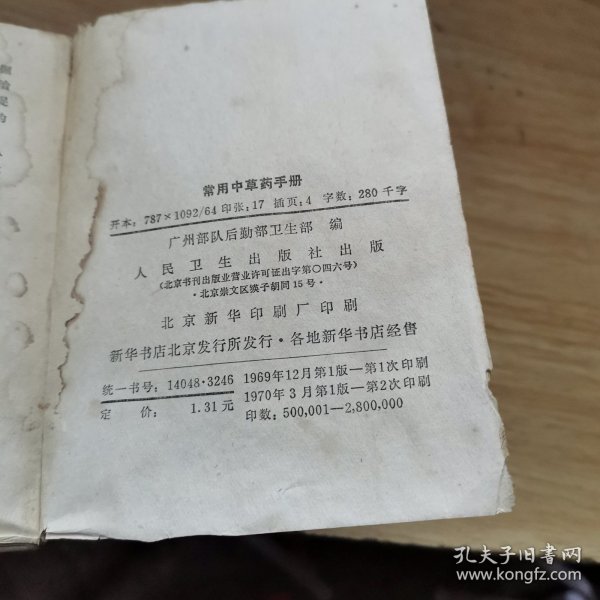 常用中草药手册
开本：787×1092/64 印张：17 插页：4 字数：280千字
广州部队后勤部卫生部 编
人民卫生出版社出版
（北京书刊出版业营业许可证出字第〇四六号）
·北京崇文区𬋖子胡同15号·
北京新华印刷厂印刷
新华书店北京发行所发行·各地新华书店经售
统一书号：14048·3246
定 价：1.31元
1969年12月第1版—第1次印刷
1970年3月第1版—第2次印刷
印数：500,001—2,800,000
孔夫子旧书网
www.kongfz.com